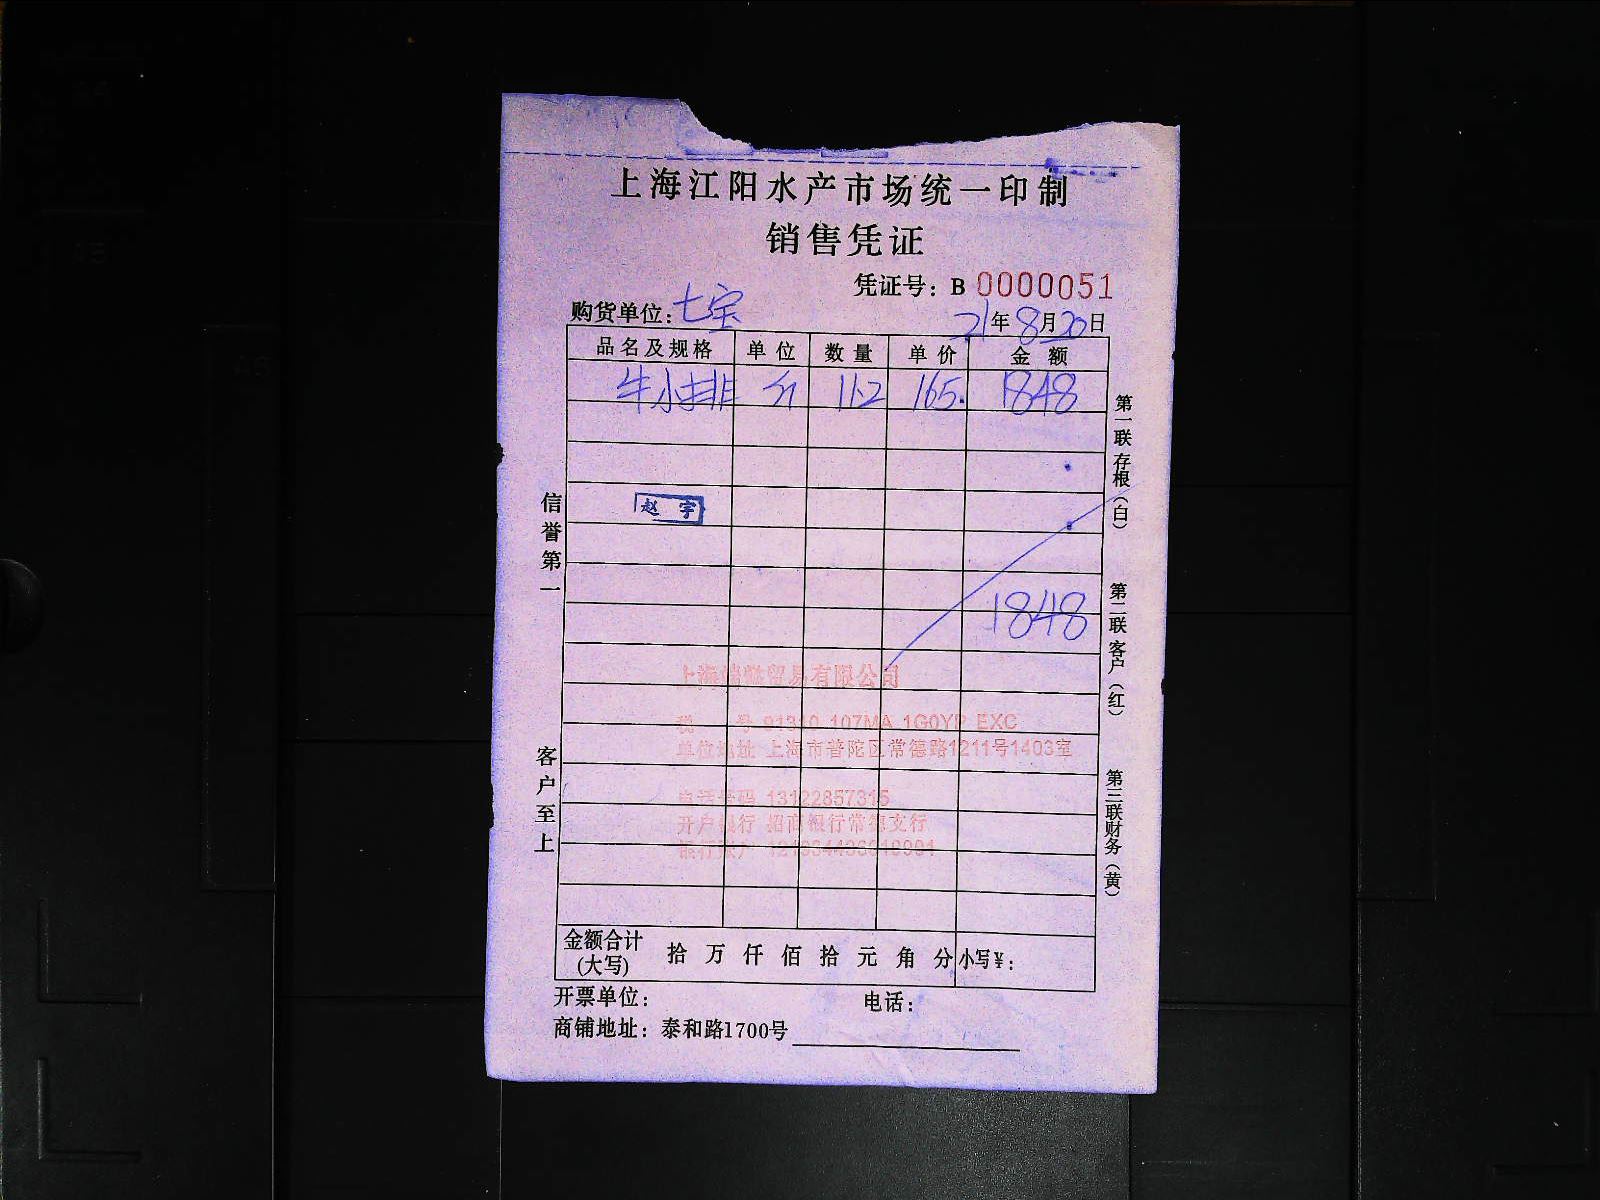 上海江阳水产市场统一印制
销售凭证
凭证号：B 0000051
购货单位：七宝
21年8月20日
品名及规格 单位 数量 单价 金额
牛小排 斤 11.2 165. 1848
赵宇
1848
上海 贸易有限公司
税 号 91310 107MA 1G0YP EXC
单位地址 上海市普陀区常德路1211号1403室
电话号码 13122857315
开户银行 招商银行常德支行
银行账户
金额合计(大写) 拾 万 仟 佰 拾 元 角 分 小写¥：
开票单位： 电话：
商铺地址：泰和路1700号
信誉第一
客户至上
第一联存根（白）
第二联客户（红）
第三联财务（黄）